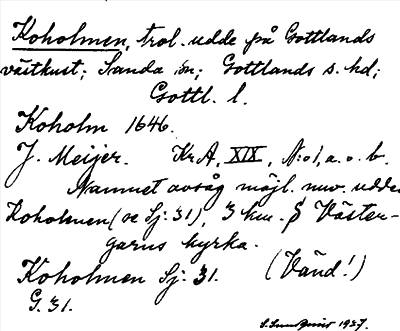 Koholmen, trol. udde på Gottlands
västkust; Sanda sn; Gottlands s. hd;
Gottl. l.
Koholm 1646.
J. Meijer. Kr A, XIX, N:o 1, a. o. b.
Namnet avsåg möjl. nuv. udde
Koholmen (se Sj: 31), 3 km. S Väster-
garns kyrka.
Koholmen Sj: 31. (Vänd!)
G. 31.
1937.